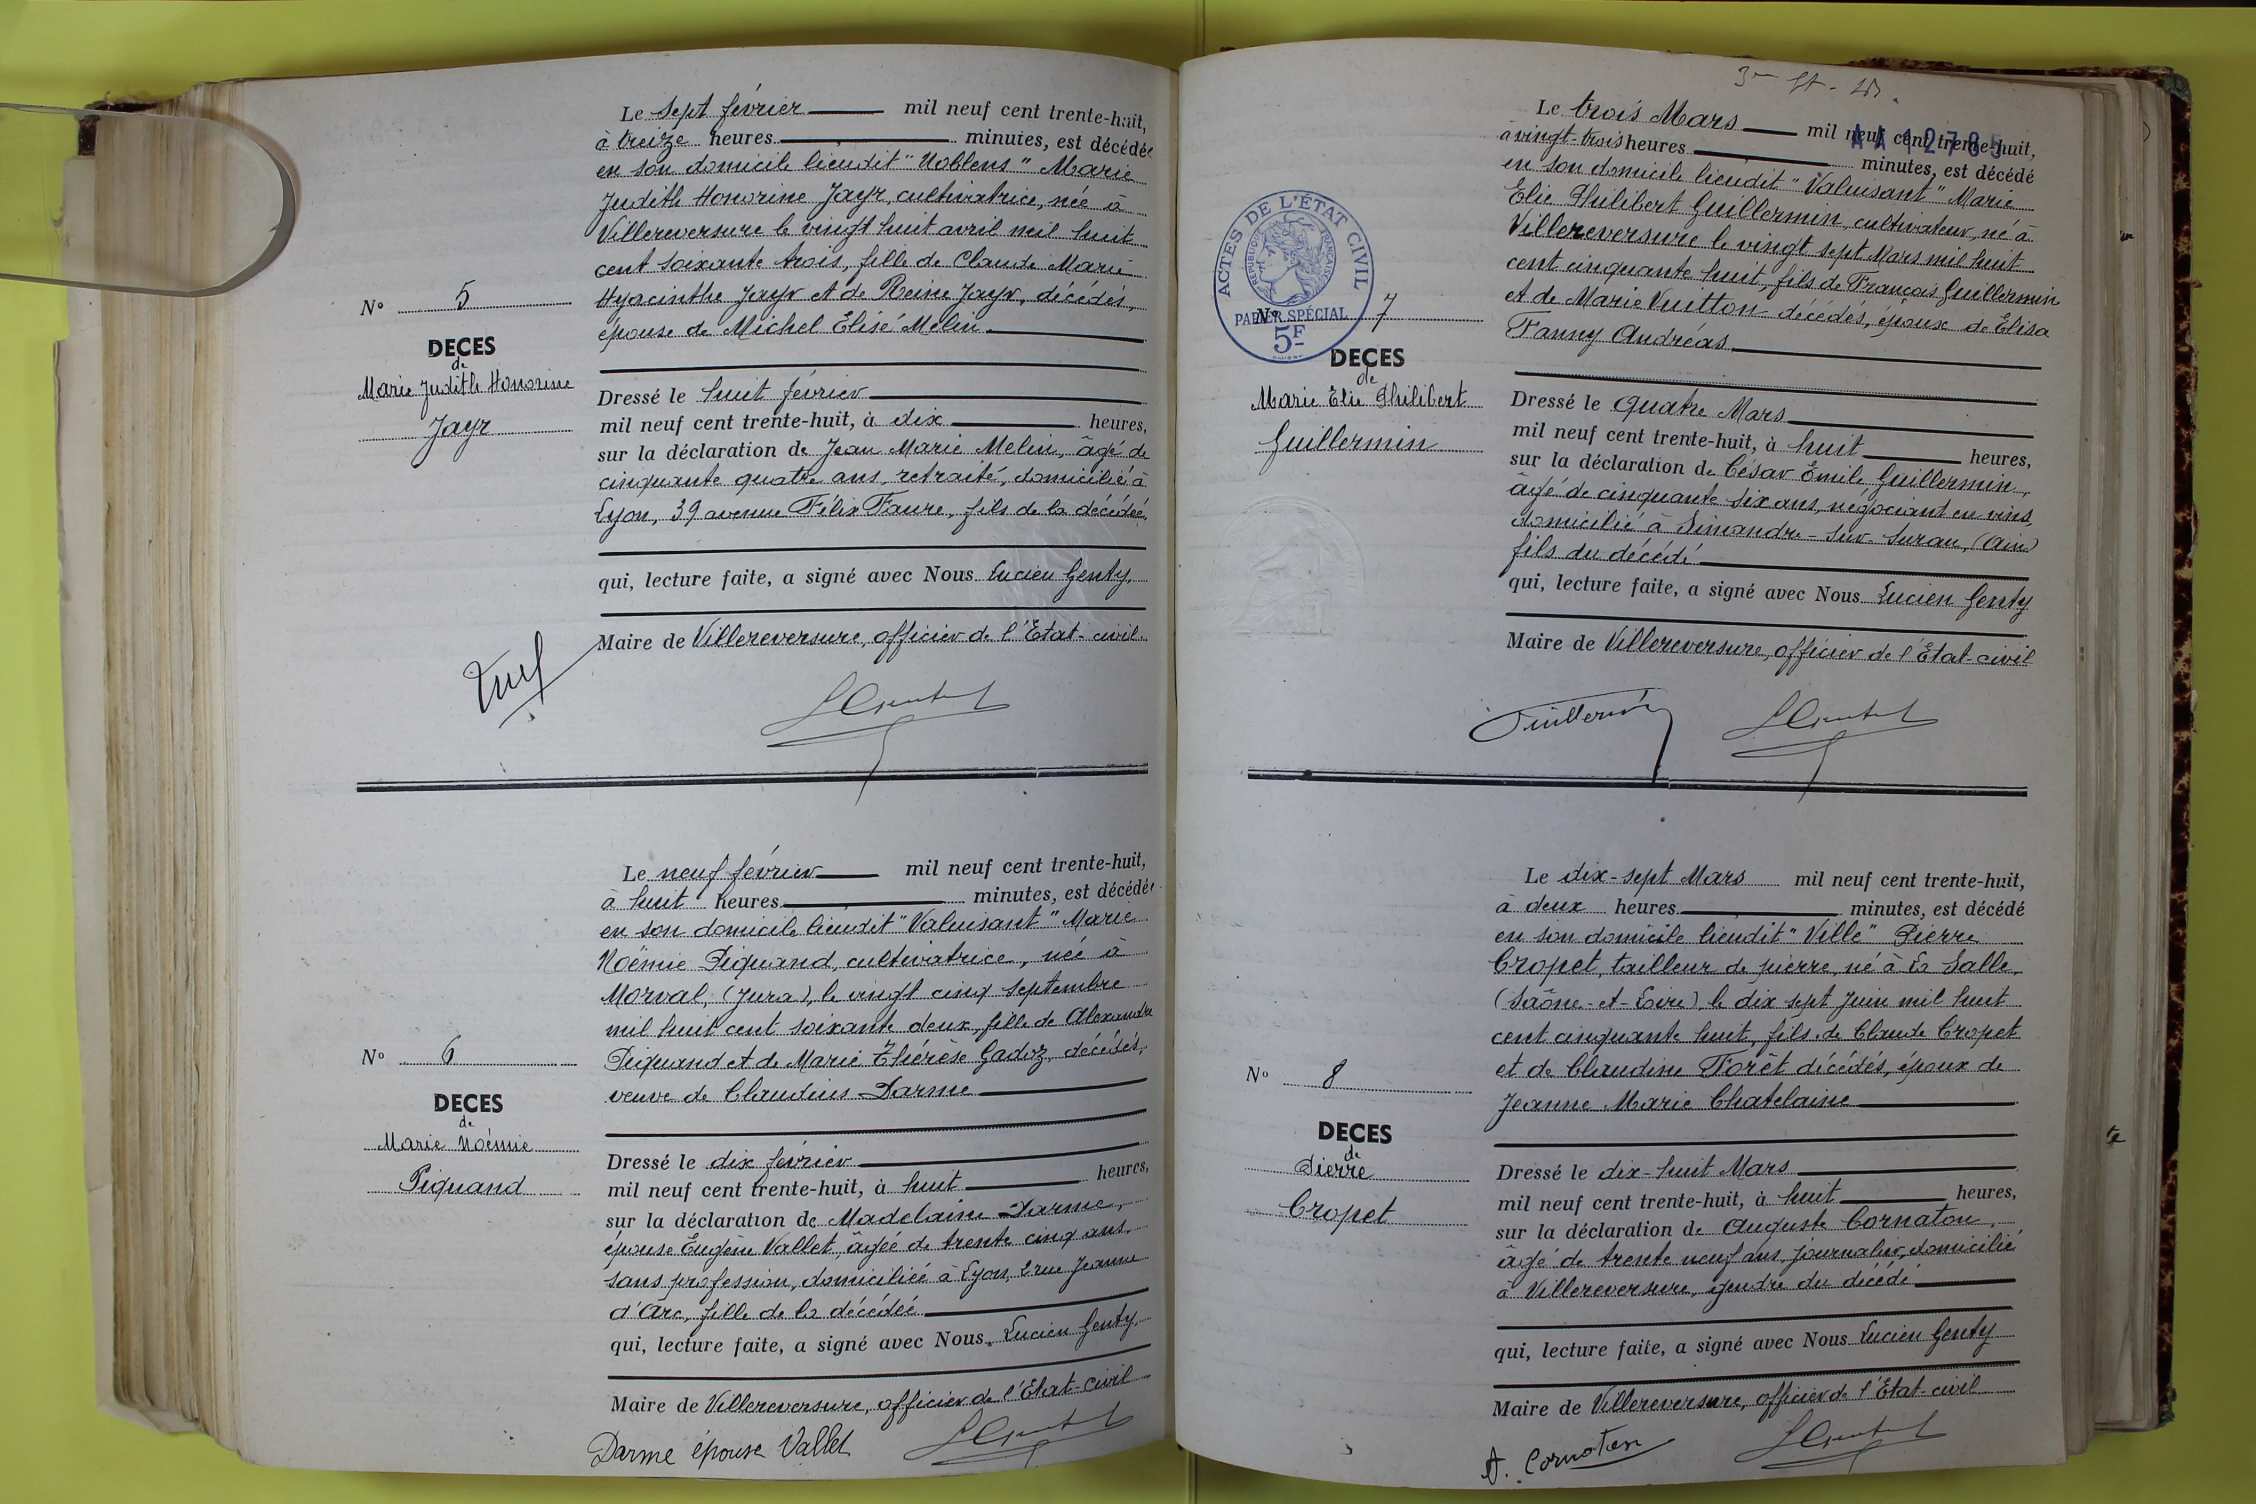 Le sept février mil neuf cent trente-huit,
à treize heures minutes, est décédée
en son domicile lieudit "Noblens" Marie
Judith Honorine Jayr, cultivatrice, née à
Villereversure le vingt huit avril mil huit
cent soixante trois, fille de Claude Marie
Hyacinthe Jayr et de Reine Jayr, décédés,
épouse de Michel Elisé Melin
N° 5
DECES
de
Marie Judith Honorine
Jayr
Dressé le huit février
mil neuf cent trente-huit, à dix heures,
sur la déclaration de Jean Marie Melin, âgé de
cinquante quatre ans, retraité, domicilié à
Lyon, 39 avenue Félix Faure, fils de la décédée,
qui, lecture faite, a signé avec Nous Lucien Genty,
Maire de Villereversure, officier de l'Etat-civil.
Le neuf février mil neuf cent trente-huit,
à huit heures minutes, est décédée
en son domicile lieudit "Valuisant" Marie
Noémie Piquand, cultivatrice, née à
Morval, (Jura), le vingt cinq septembre
mil huit cent soixante deux, fille de Alexandre
Piquand et de Marie Thérèse Gadoz, décédés,
veuve de Claudius Darme
N° 6
DECES
de
Marie Noémie
Piquand
Dressé le dix février
mil neuf cent trente-huit, à huit heures,
sur la déclaration de Madelaine Darme,
épouse Eugène Vallet, âgée de trente cinq ans,
sans profession, domiciliée à Lyon, 2 rue Jeanne
d'Arc, fille de la décédée
qui, lecture faite, a signé avec Nous, Lucien Genty,
Maire de Villereversure, officier de l'Etat-civil
Darme épouse Vallet
AA 12785
Le trois Mars mil neuf cent trente-huit,
à vingt-trois heures minutes, est décédé
en son domicile lieudit "Valuisant" Marie
Elie Philibert Guillermin, cultivateur, né à
Villereversure le vingt sept Mars mil huit
cent cinquante huit, fils de François Guillermin
et de Marie Vuitton décédés, époux de Elisa
Fanny Andréas
ACTES DE L'ÉTAT CIVIL
RÉPUBLIQUE FRANÇAISE
PAPIER SPÉCIAL
5F
N° 7
DECES
de
Marie Elie Philibert
Guillermin
Dressé le quatre Mars
mil neuf cent trente-huit, à huit heures,
sur la déclaration de César Emile Guillermin,
âgé de cinquante six ans, négociant en vins,
domicilié à Simandre-sur-Suran, (Ain)
fils du décédé
qui, lecture faite, a signé avec Nous Lucien Genty
Maire de Villereversure, officier de l'Etat-civil
Guillermin
Le dix-sept Mars mil neuf cent trente-huit,
à deux heures minutes, est décédé
en son domicile lieudit "Ville" Pierre
Cropet, tailleur de pierre, né à La Salle,
(Saône-et-Loire), le dix sept Juin mil huit
cent cinquante huit, fils de Claude Cropet
et de Claudine Forêt décédés, époux de
Jeanne Marie Chatelaine
N° 8
DECES
de
Pierre
Cropet
Dressé le dix-huit Mars
mil neuf cent trente-huit, à huit heures,
sur la déclaration de Auguste Cornaton,
âgé de trente neuf ans, journalier, domicilié
à Villereversure, gendre du décédé
qui, lecture faite, a signé avec Nous Lucien Genty
Maire de Villereversure, officier de l'Etat-civil
A. Cornaton